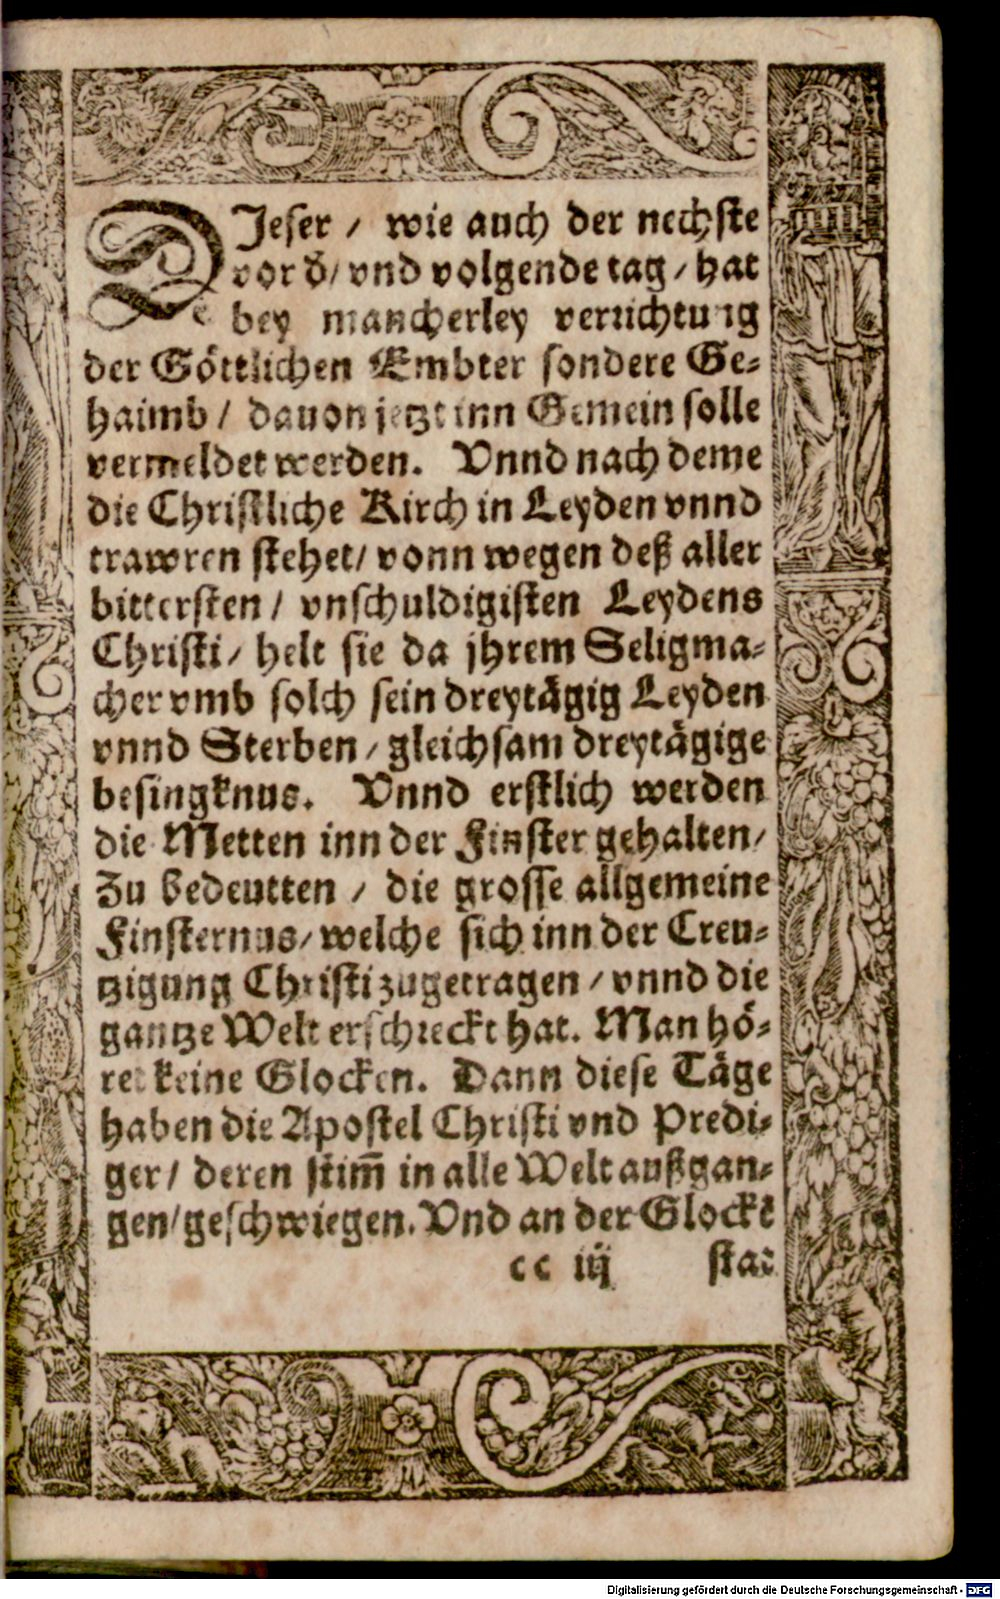 DJeser / wie auch der nechste
vor dˀ / vnd volgende tag / hat
bey mancherley verrichtung
der Göttlichen Embter sondere Ge⸗
haimb / dauon jetzt inn Gemein solle
vermeldet werden. Vnnd nach deme
die Christliche Kirch in Leyden vnnd
trawren stehet / vonn wegen deß aller
bittersten / vnschuldigisten Leydens
Christi / helt sie da jhrem Seligma⸗
cher vmb solch sein dreytägig Leyden
vnnd Sterben / gleichsam dreytägige
besingknus. Vnnd erstlich werden
die Metten inn der Finster gehalten /
Zu bedeutten / die grosse allgemeine
Finsternus / welche sich inn der Creu⸗
tzigung Christi zugetragen / vnnd die
gantze Welt erschreckt hat. Man hö⸗
ret keine Glocken. Dann diese Täge
haben die Apostel Christi vnd Predi⸗
ger / deren stim̃ in alle Welt außgan⸗
gen / geschwiegen. Vnd an der Glockẽ
cc iij stat
Digitalisierung gefördert durch die Deutsche Forschungsgemeinschaft - DFG